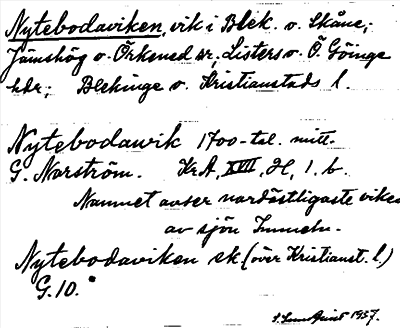 Nytebodaviken, vik i Blek. o. Skåne;
Jämshög o. Örkened sr, Listers o. Ö. Göinge
hdr; Blekinge o. Kristianstads l.
Nytebodawik 1700-tal. mitt.
G. Norström. KrA, XVII, H, 1. b.
Namnet avser nordöstligaste viken
av sjön Immeln.
Nytebodaviken ek. (över Kristianst. l.)
G. 10.
1957.